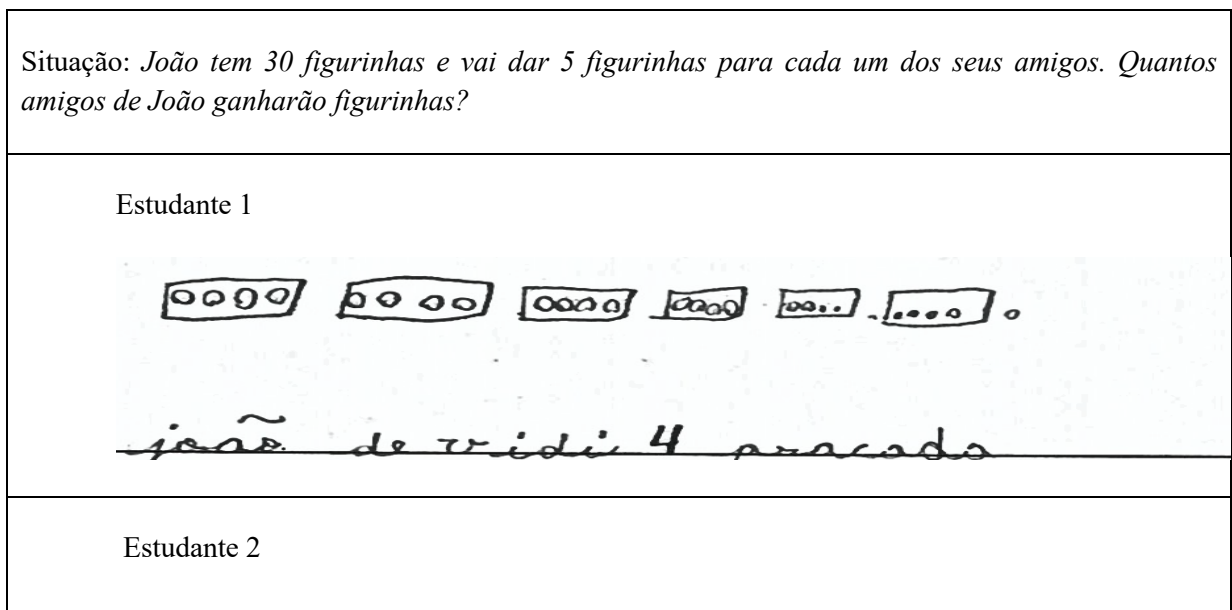 Situação: João tem 30 figurinhas e vai dar 5 figurinhas para cada um dos seus amigos. Quantos
amigos de João ganharão figurinhas?
Estudante 1
joão de vidi 4 pracado
Estudante 2